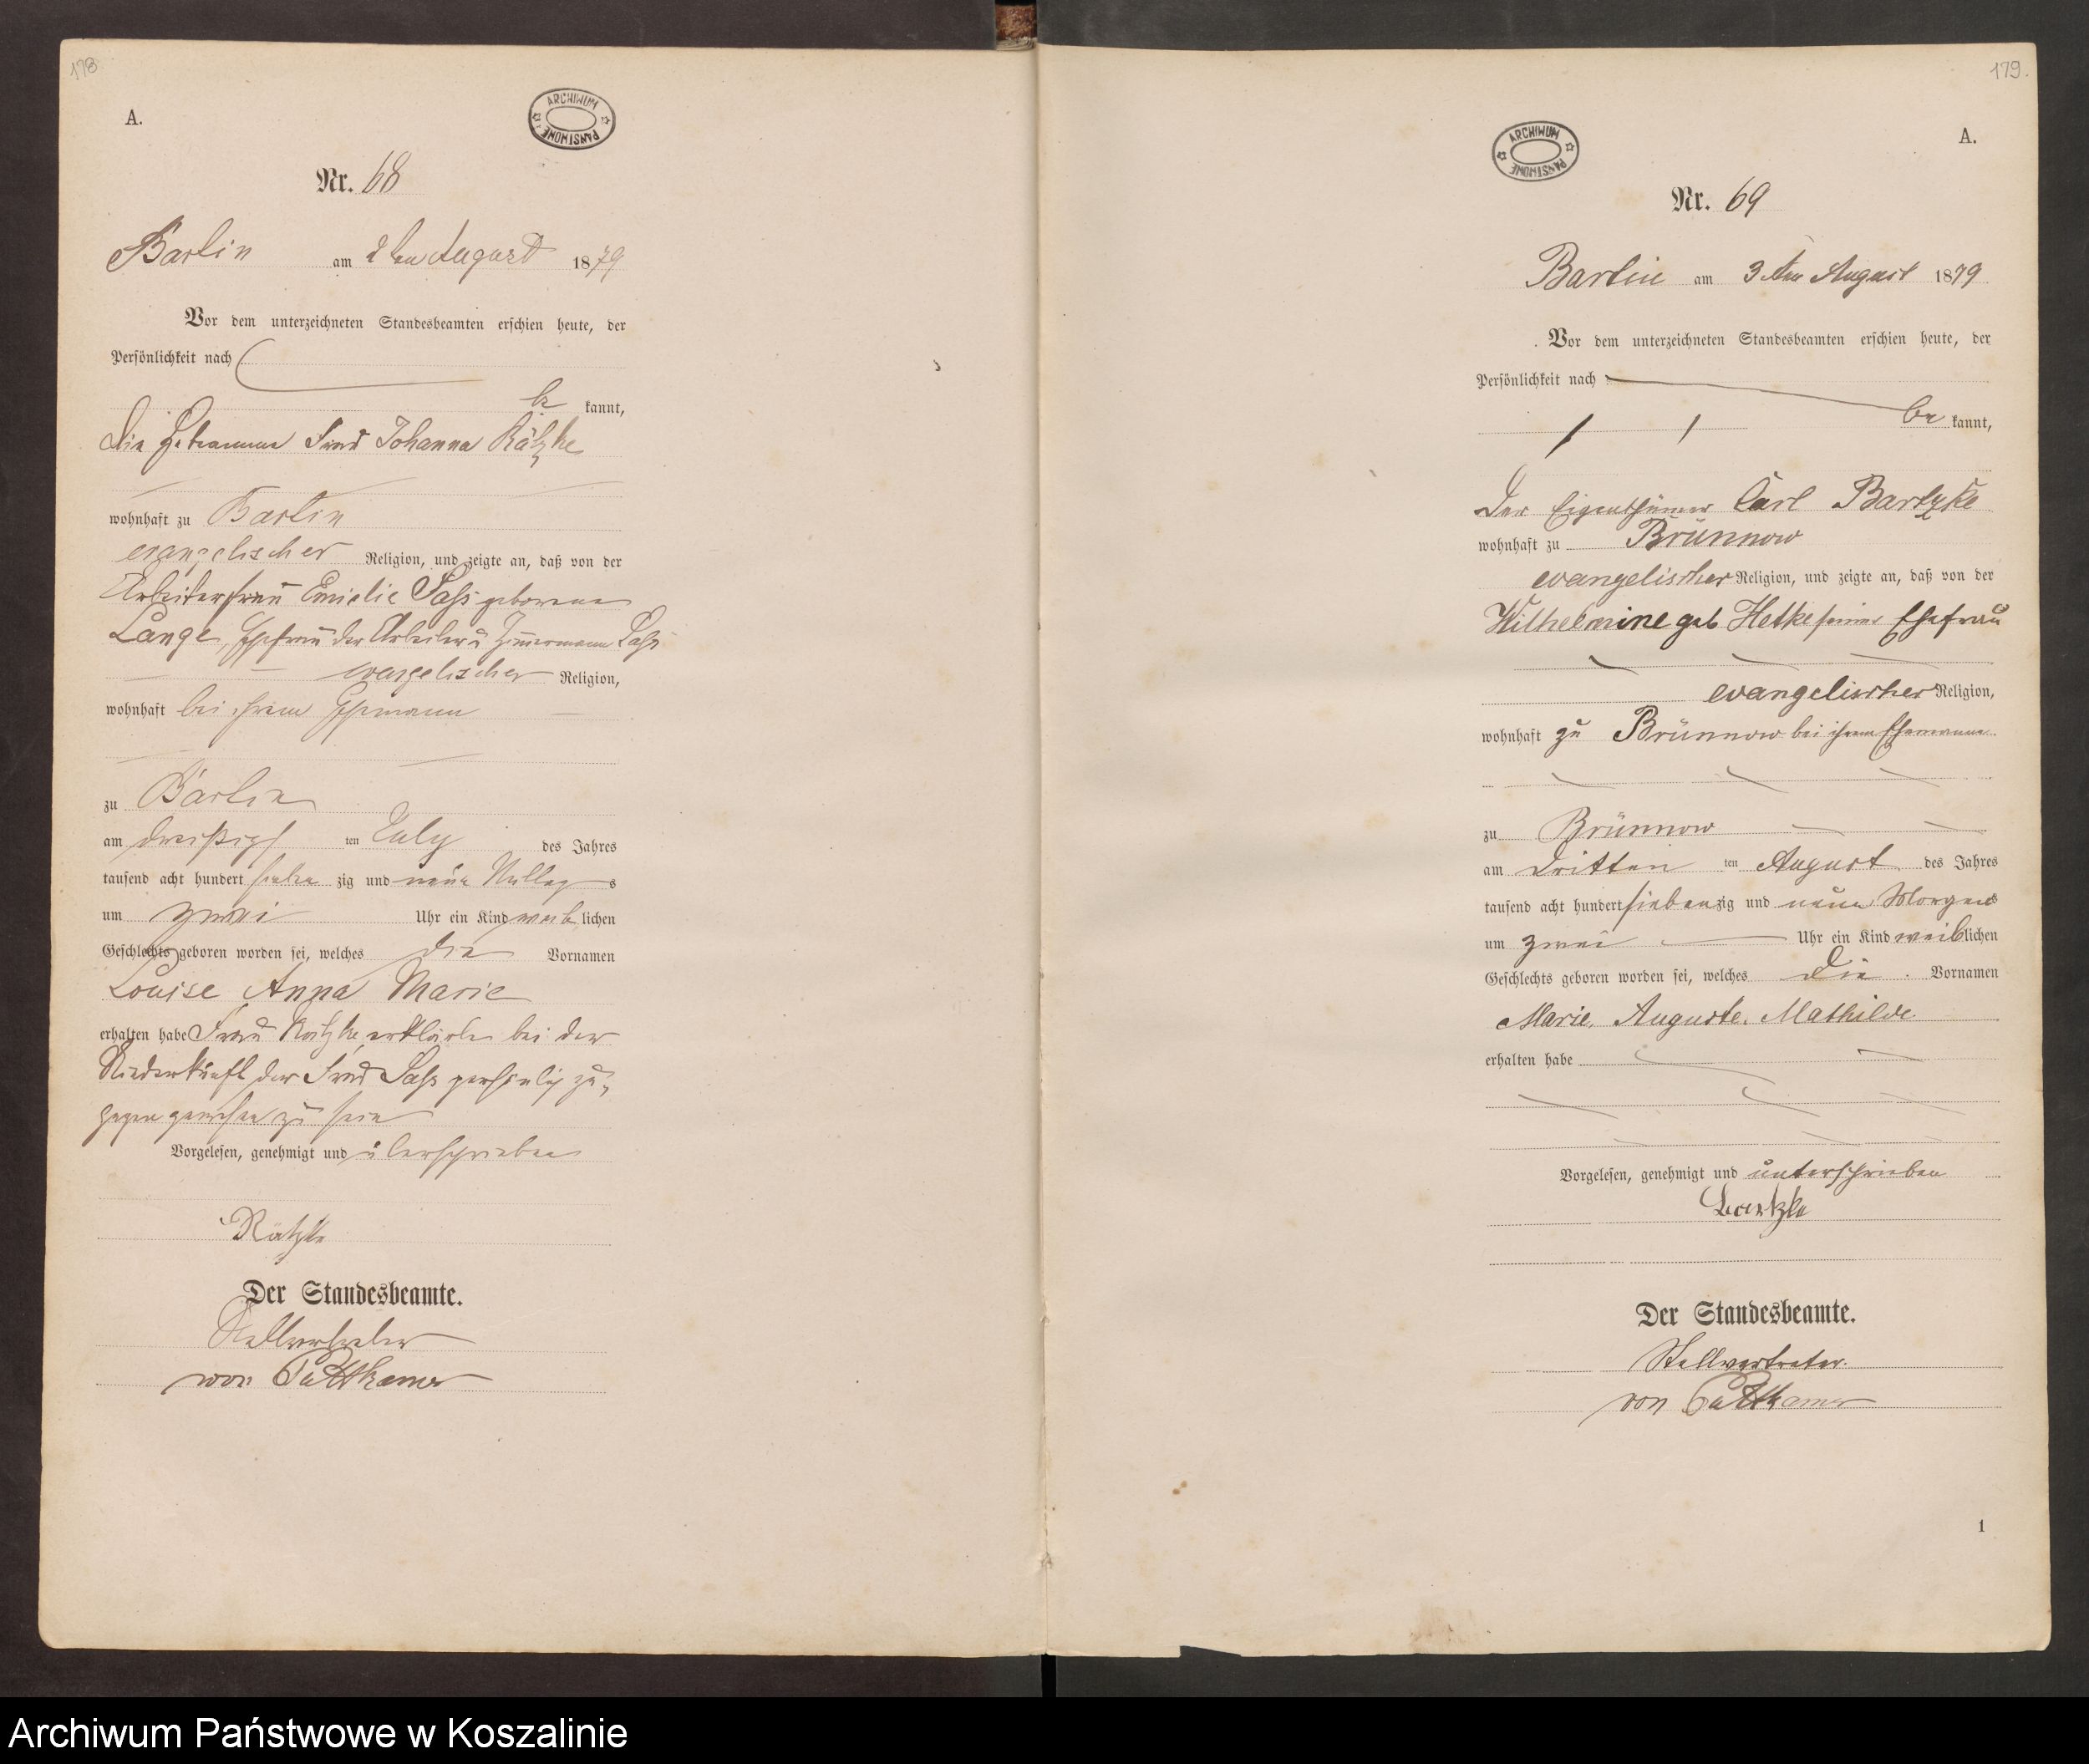 178
A.
ARCHIWUM PAŃSTWOWE
Nr. 68
Bartin am 2ten August 1879
Vor dem unterzeichneten Standesbeamten erschien heute, der
Persönlichkeit nach
be kannt,
die Hebamme Frau Johanna Rätzke
wohnhaft zu Bartin
evangelischer Religion, und zeigte an, daß von der
Arbeiterfrau Emielie Sass geborene
Lange, Ehefrau der Arbeiter u Zimmermann Sass
evangelischer Religion,
wohnhaft bei ihrem Ehemann
zu Bartin
am dreißigs ten July des Jahres
tausend acht hundert sieben zig und neun Mittags
um zwei Uhr ein Kind weib lichen
Geschlechts geboren worden sei, welches die Vornamen
Louise Anna Marie
erhalten habe Frau Rätzke erklärte bei der
Niederkunft der Frau Sass persönlich zu-
gegen gewesen zu sein
Vorgelesen, genehmigt und unterschrieben
Rätzke
Der Standesbeamte.
Stellvertreter
von Puttkamer
179.
A.
ARCHIWUM PAŃSTWOWE
Nr. 69
Bartin am 3ten August 1879
Vor dem unterzeichneten Standesbeamten erschien heute, der
Persönlichkeit nach
be kannt,
Der Eigenthümer Carl Bartzke
wohnhaft zu Brünnow
evangelischer Religion, und zeigte an, daß von der
Wilhelmine geb Hetke seiner Ehefrau
evangelischer Religion,
wohnhaft zu Brünnow bei ihrem Ehemanne
zu Brünnow
am dritten ten August des Jahres
tausend acht hundert sieben zig und neun Morgens
um zwei Uhr ein Kind weib lichen
Geschlechts geboren worden sei, welches die Vornamen
Marie, Auguste, Mathilde
erhalten habe
Vorgelesen, genehmigt und unterschrieben
Bartzke
Der Standesbeamte.
Stellvertreter.
von Puttkamer
1
Archiwum Państwowe w Koszalinie